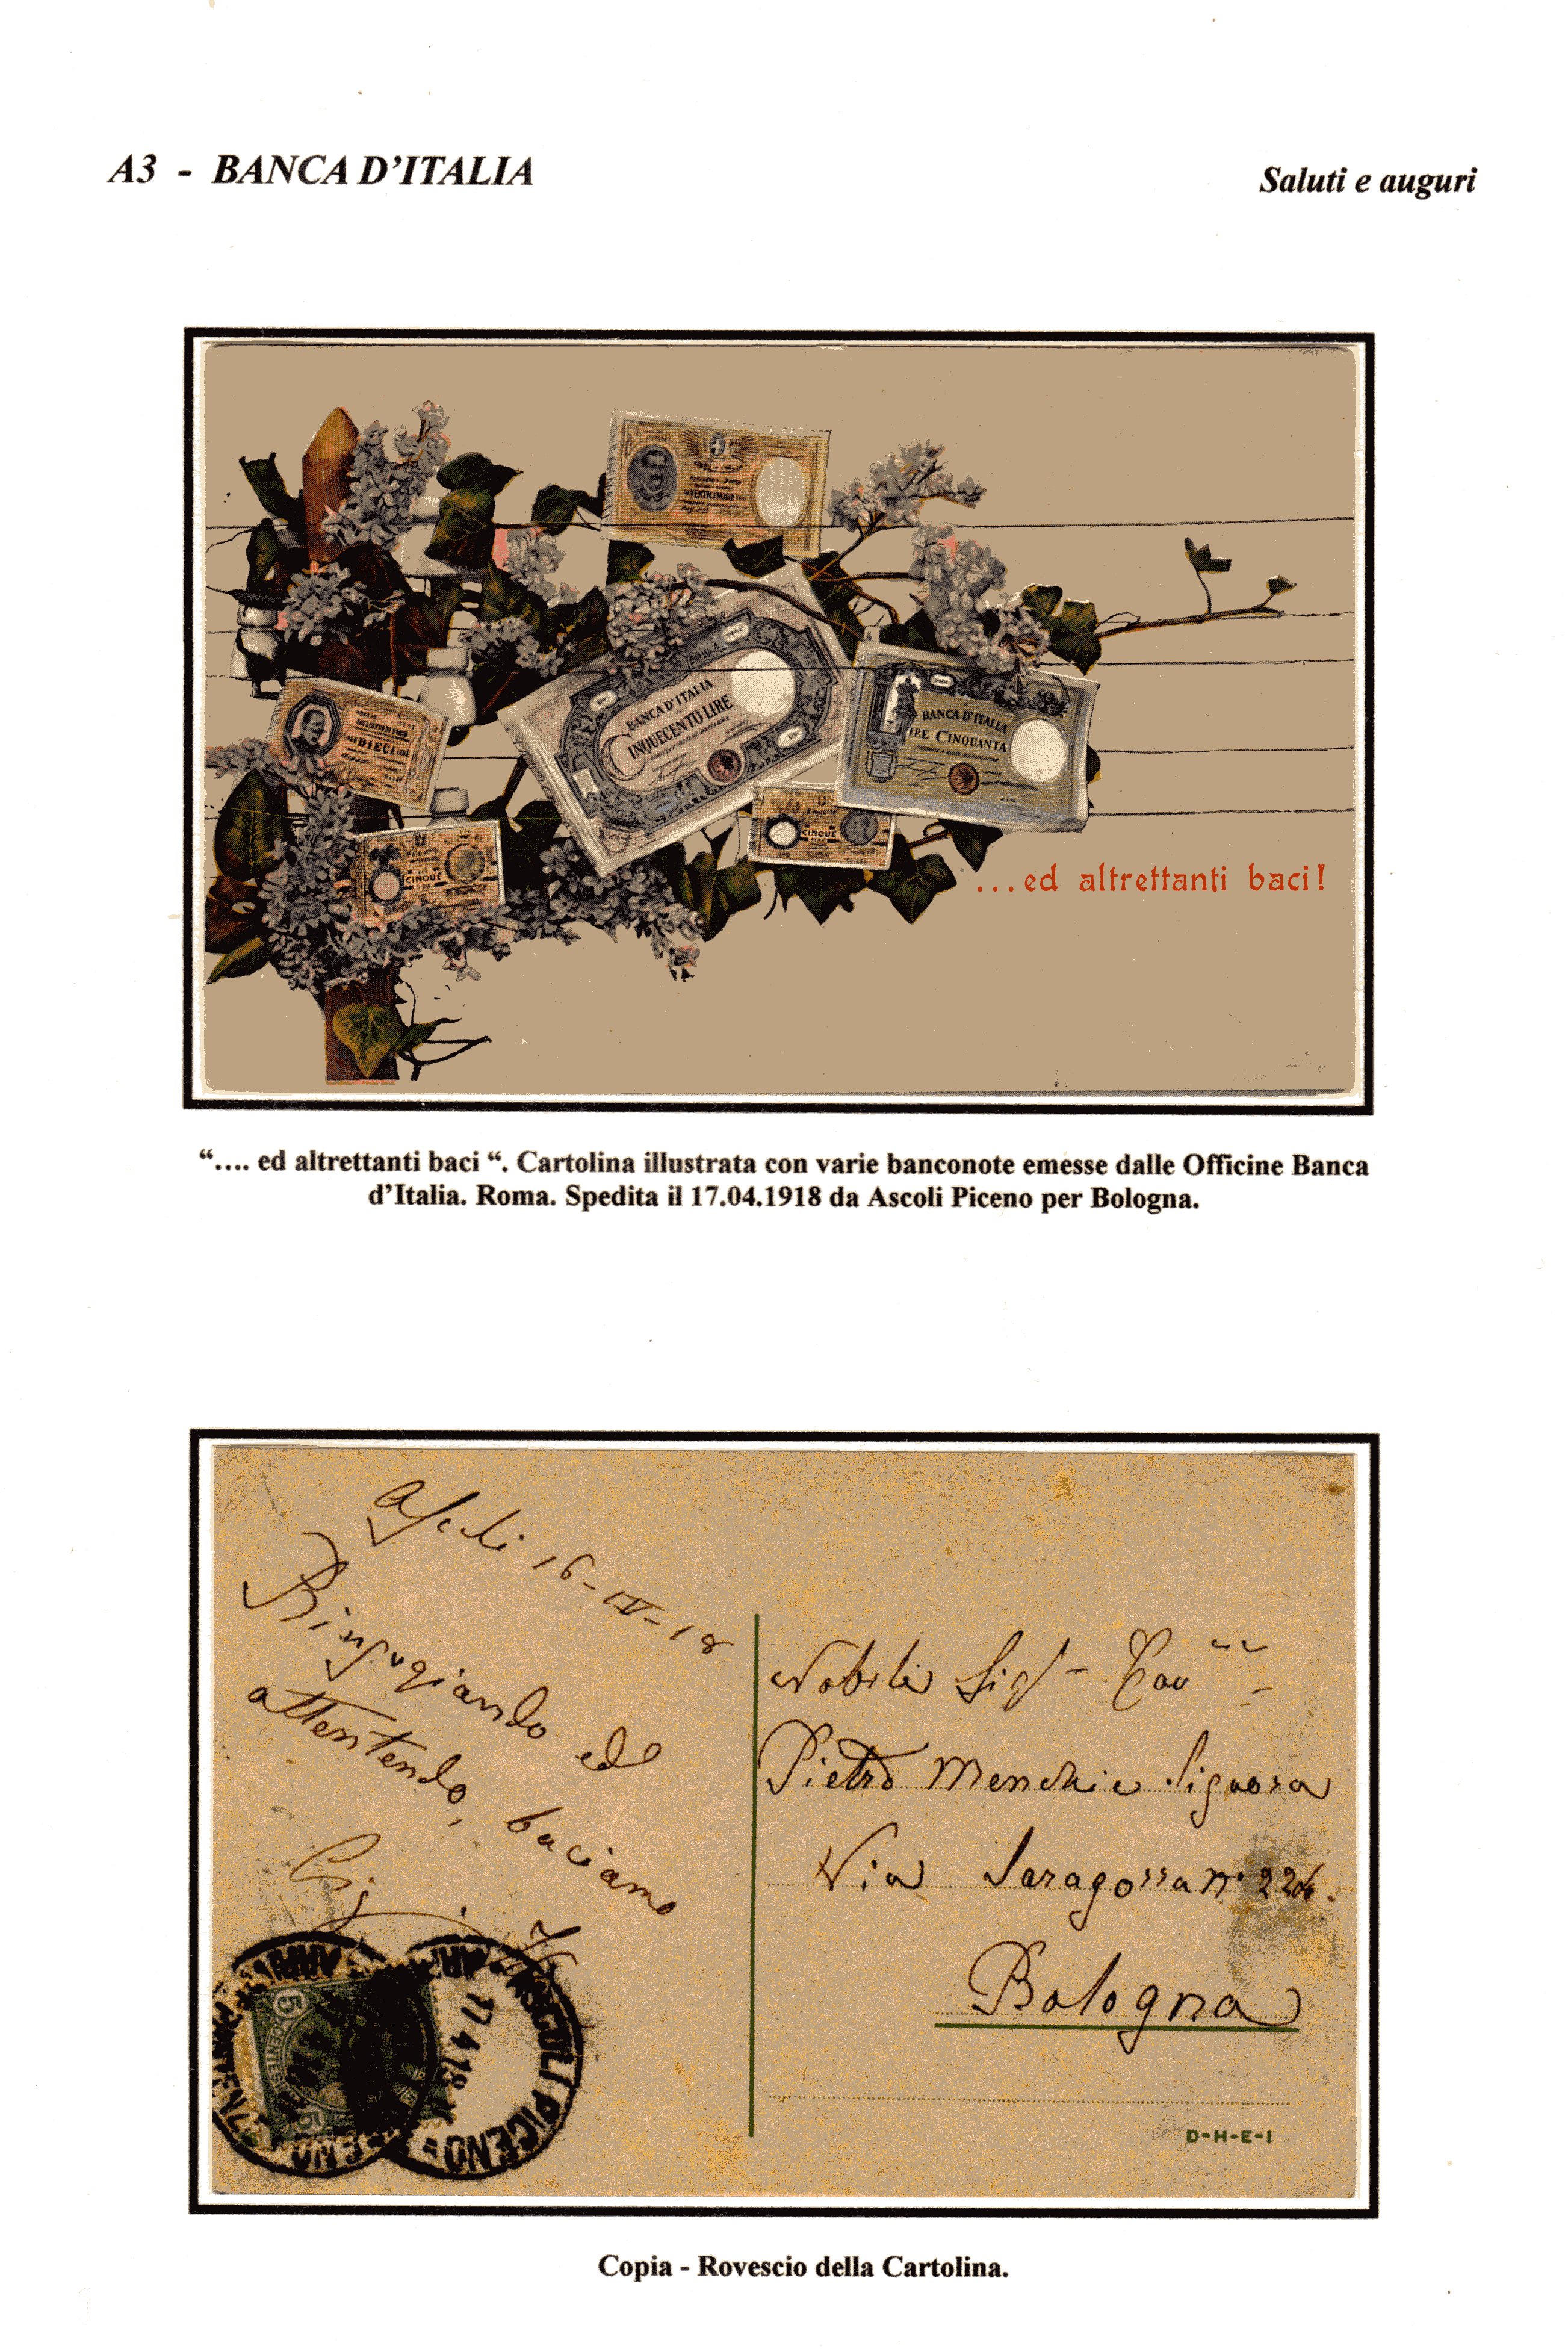 A3 - BANCA D'ITALIA
Saluti e auguri
VENTICINQUE
BANCA D'ITALIA
CINQUECENTO LIRE
BANCA D'ITALIA
LIRE CINQUANTA
DIECI
CINQUE
CINQUE
...ed altrettanti baci!
“.... ed altrettanti baci “. Cartolina illustrata con varie banconote emesse dalle Officine Banca
d'Italia. Roma. Spedita il 17.04.1918 da Ascoli Piceno per Bologna.
Ascoli 16-IV-18
Ringraziando ed
attentendo, baciamo
Nobile Sigr Cav
Pietro Menchi e Signora
Via Saragozza n.
Bologna
D-H-E-I
5
CENTES
5
ASCOLI PICENO
17 4 18
Copia - Rovescio della Cartolina.